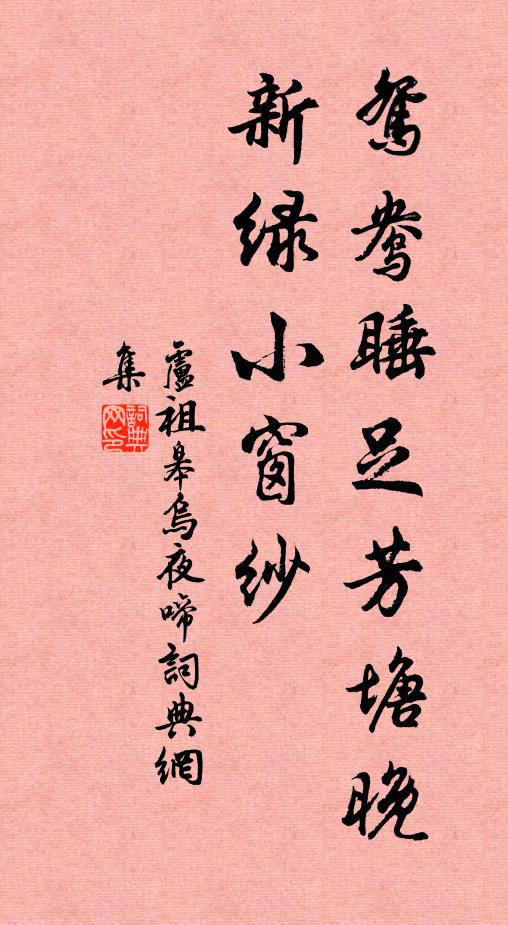 鴛鴦睡足芳塘晚
新緑小窗紗
盧祖皋烏夜啼詞典網
集
詞典
网印